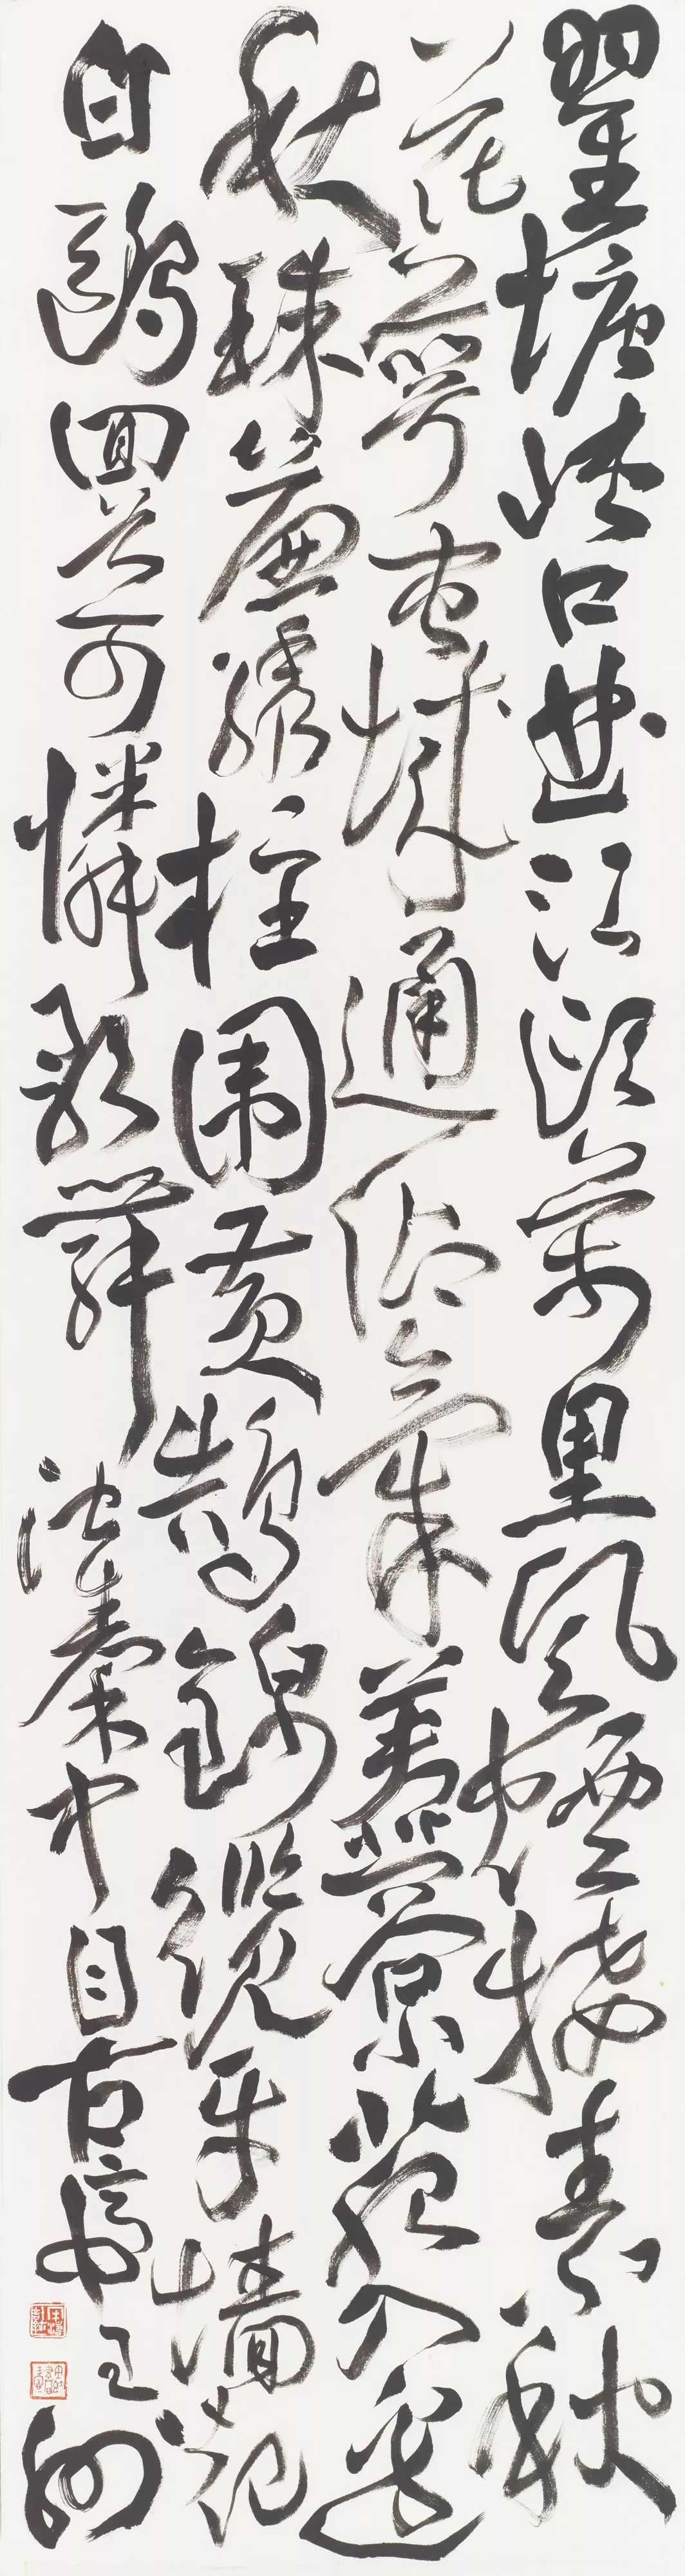 瞿塘峽口曲江頭萬里風煙接素秋
花萼夾城通御氣芙蓉小苑入邊
秋珠簾繡柱圍黃鵠錦纜牙檣起
白鷗回首可憐歌舞地秦中自古帝王州